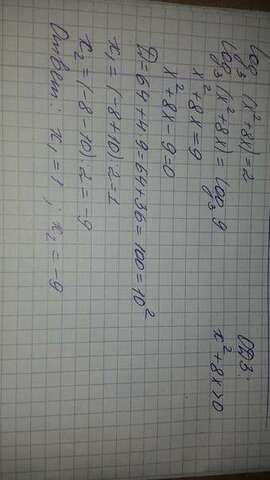 log₃ (x²+8x)=2
ОДЗ:
log₃ (x²+8x)=log₃ 9
x²+8x>0
x²+8x=9
x²+8x-9=0
D=64+4·9=64+36=100=10²
x₁=(-8+10):2=1
x₂=(-8-10):2=-9
Ответ: x₁=1; x₂=-9